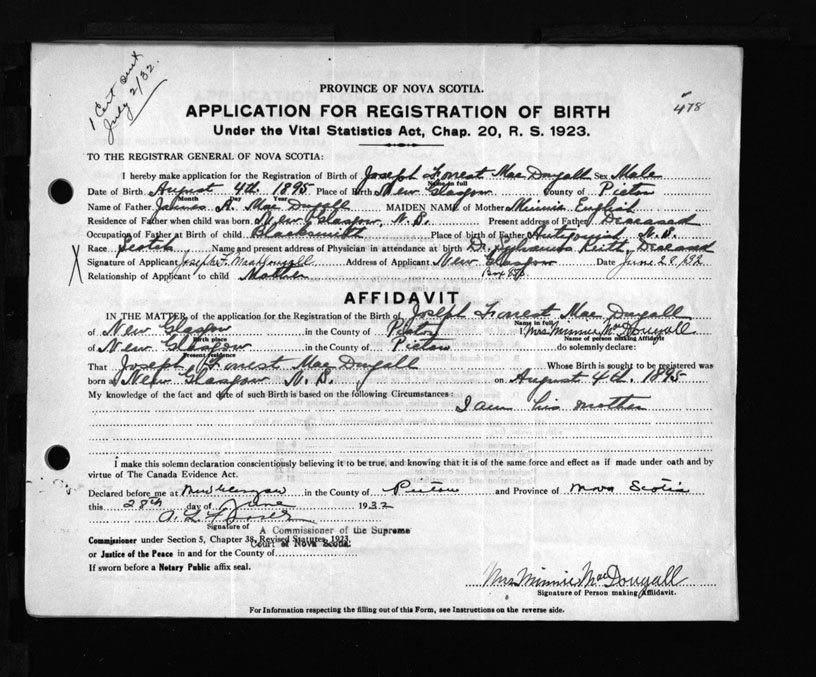 1 Cert sent
July 2/32.
478
PROVINCE OF NOVA SCOTIA.
APPLICATION FOR REGISTRATION OF BIRTH
Under the Vital Statistics Act, Chap. 20, R. S. 1923.
TO THE REGISTRAR GENERAL OF NOVA SCOTIA:
I hereby make application for the Registration of Birth of Joseph Forrest Mac Dugall Sex Male
Name in full
Date of Birth August 4th. 1895 Place of Birth New Glasgow County of Pictou
Month Day Year
Name of Father James A. Mac Dugall MAIDEN NAME of Mother Minnie English
Residence of Father when child was born New Glasgow, N.S. Present address of Father Deceased
Occupation of Father at Birth of child Blacksmith Place of birth of Father Antigonish, N.S.
Race Scotch Name and present address of Physician in attendance at birth Dr. Keith, Deceased
Signature of Applicant Joseph F. MacDougall Address of Applicant New Glasgow Date June 28/32
Box
Relationship of Applicant to child Mother
AFFIDAVIT
IN THE MATTER of the application for the Registration of the Birth of Joseph Forrest Mac Dugall
Name in full
of New Glasgow in the County of Pictou I, Mrs Minnie MacDougall
Birth place Name of person making Affidavit
of New Glasgow in the County of Pictou do solemnly declare:
Present residence
That Joseph Forrest Mac Dugall Whose Birth is sought to be registered was
born at New Glasgow N.S. on August 4th. 1895
My knowledge of the fact and date of such Birth is based on the following Circumstances:
I am his mother
I make this solemn declaration conscientiously believing it to be true, and knowing that it is of the same force and effect as if made under oath and by
virtue of The Canada Evidence Act.
Declared before me at New Glasgow in the County of Pictou and Province of Nova Scotia
this 28th day of June 1932
Signature of A Commissioner of the Supreme
Commissioner under Section 5, Chapter 38, Revised Statutes, 1923.
Court of Nova Scotia
or Justice of the Peace in and for the County of
If sworn before a Notary Public affix seal.
Mrs Minnie MacDougall
Signature of Person making Affidavit.
For Information respecting the filling out of this Form, see Instructions on the reverse side.